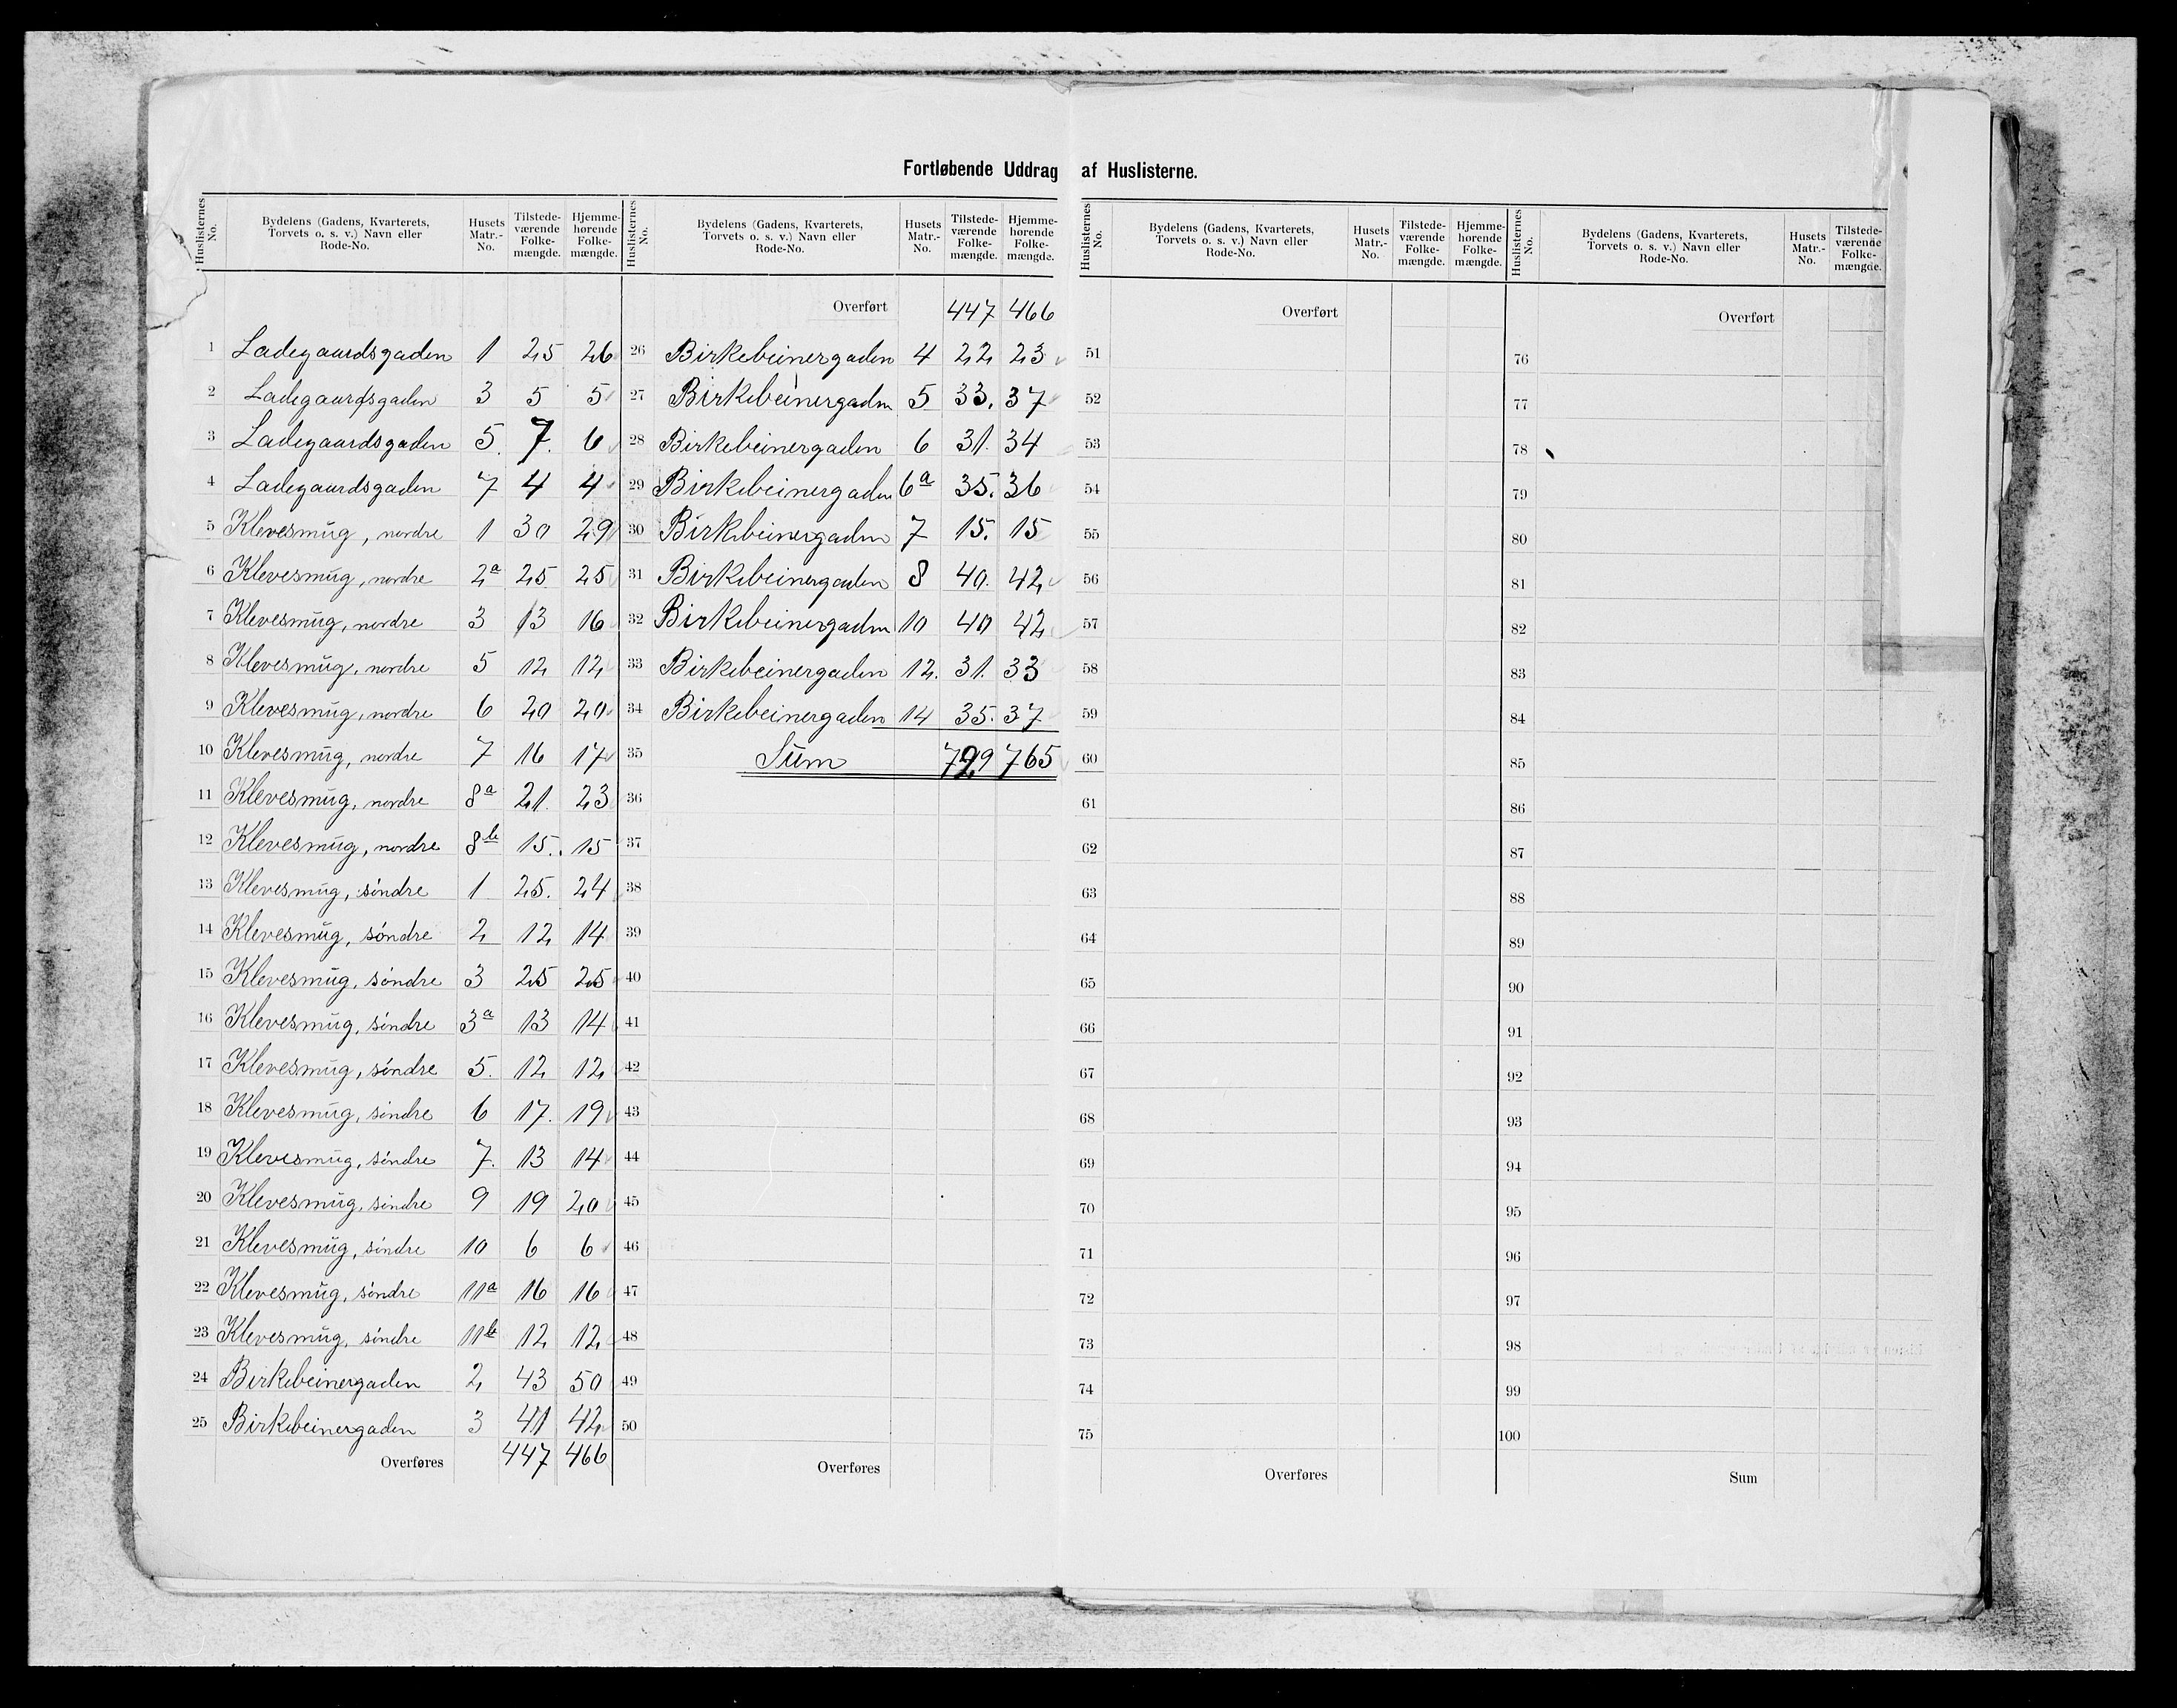 Fortløbende Uddrag af Huslisterne.
Huslisternes No. Bydelens (Gadens, Kvarterets, Torvets o. s. v.) Navn eller Rode-No. Husets Matr.-No. Tilstede-værende Folke-mængde. Hjemme-hørende Folke-mængde.
1 Ladegaardsgaden 1 25 26
2 Ladegaardsgaden 3 5 5
3 Ladegaardsgaden 5. 7. 6
4 Ladegaardsgaden 7 4 4
5 Klevesmug, nordre 1 30 29
6 Klevesmug, nordre 2a 25 25
7 Klevesmug, nordre 3 13 16
8 Klevesmug, nordre 5 12 12
9 Klevesmug, nordre 6 20 20
10 Klevesmug, nordre 7 16 17
11 Klevesmug, nordre 8a 21. 23
12 Klevesmug, nordre 8b 15. 15
13 Klevesmug, søndre 1 25. 24
14 Klevesmug, søndre 2 12 14
15 Klevesmug, søndre 3 25 25
16 Klevesmug, søndre 3a 13 14
17 Klevesmug, søndre 5. 12 12
18 Klevesmug, søndre 6 17. 19
19 Klevesmug, søndre 7. 13 14
20 Klevesmug, søndre 9 19 20
21 Klevesmug, søndre 10 6 6
22 Klevesmug, søndre 11a 16 16
23 Klevesmug, søndre 11b 12 12
24 Birkebeinergaden 2 43 50
25 Birkebeinergaden 3 41 42
Overføres 447 466
Huslisternes No. Bydelens (Gadens, Kvarterets, Torvets o. s. v.) Navn eller Rode-No. Husets Matr.-No. Tilstede-værende Folke-mængde. Hjemme-hørende Folke-mængde.
Overført 447 466
26 Birkebeinergaden 4 22 23
27 Birkebeinergaden 5 33. 37
28 Birkebeinergaden 6 31. 34
29 Birkebeinergaden 6a 35. 36
30 Birkebeinergaden 7 15. 15
31 Birkebeinergaden 8 40. 42
32 Birkebeinergaden 10 40 42
33 Birkebeinergaden 12. 31. 33
34 Birkebeinergaden 14 35. 37
35 Sum 729 765
36
37
38
39
40
41
42
43
44
45
46
47
48
49
50
Overføres
Huslisternes No. Bydelens (Gadens, Kvarterets, Torvets o. s. v.) Navn eller Rode-No. Husets Matr.-No. Tilstede-værende Folke-mængde. Hjemme-hørende Folke-mængde.
Overført
51
52
53
54
55
56
57
58
59
60
61
62
63
64
65
66
67
68
69
70
71
72
73
74
75
Overføres
Huslisternes No. Bydelens (Gadens, Kvarterets, Torvets o. s. v.) Navn eller Rode-No. Husets Matr.-No. Tilstede-værende Folke-mængde.
Overført
76
77
78
79
80
81
82
83
84
85
86
87
88
89
90
91
92
93
94
95
96
97
98
99
100
Sum